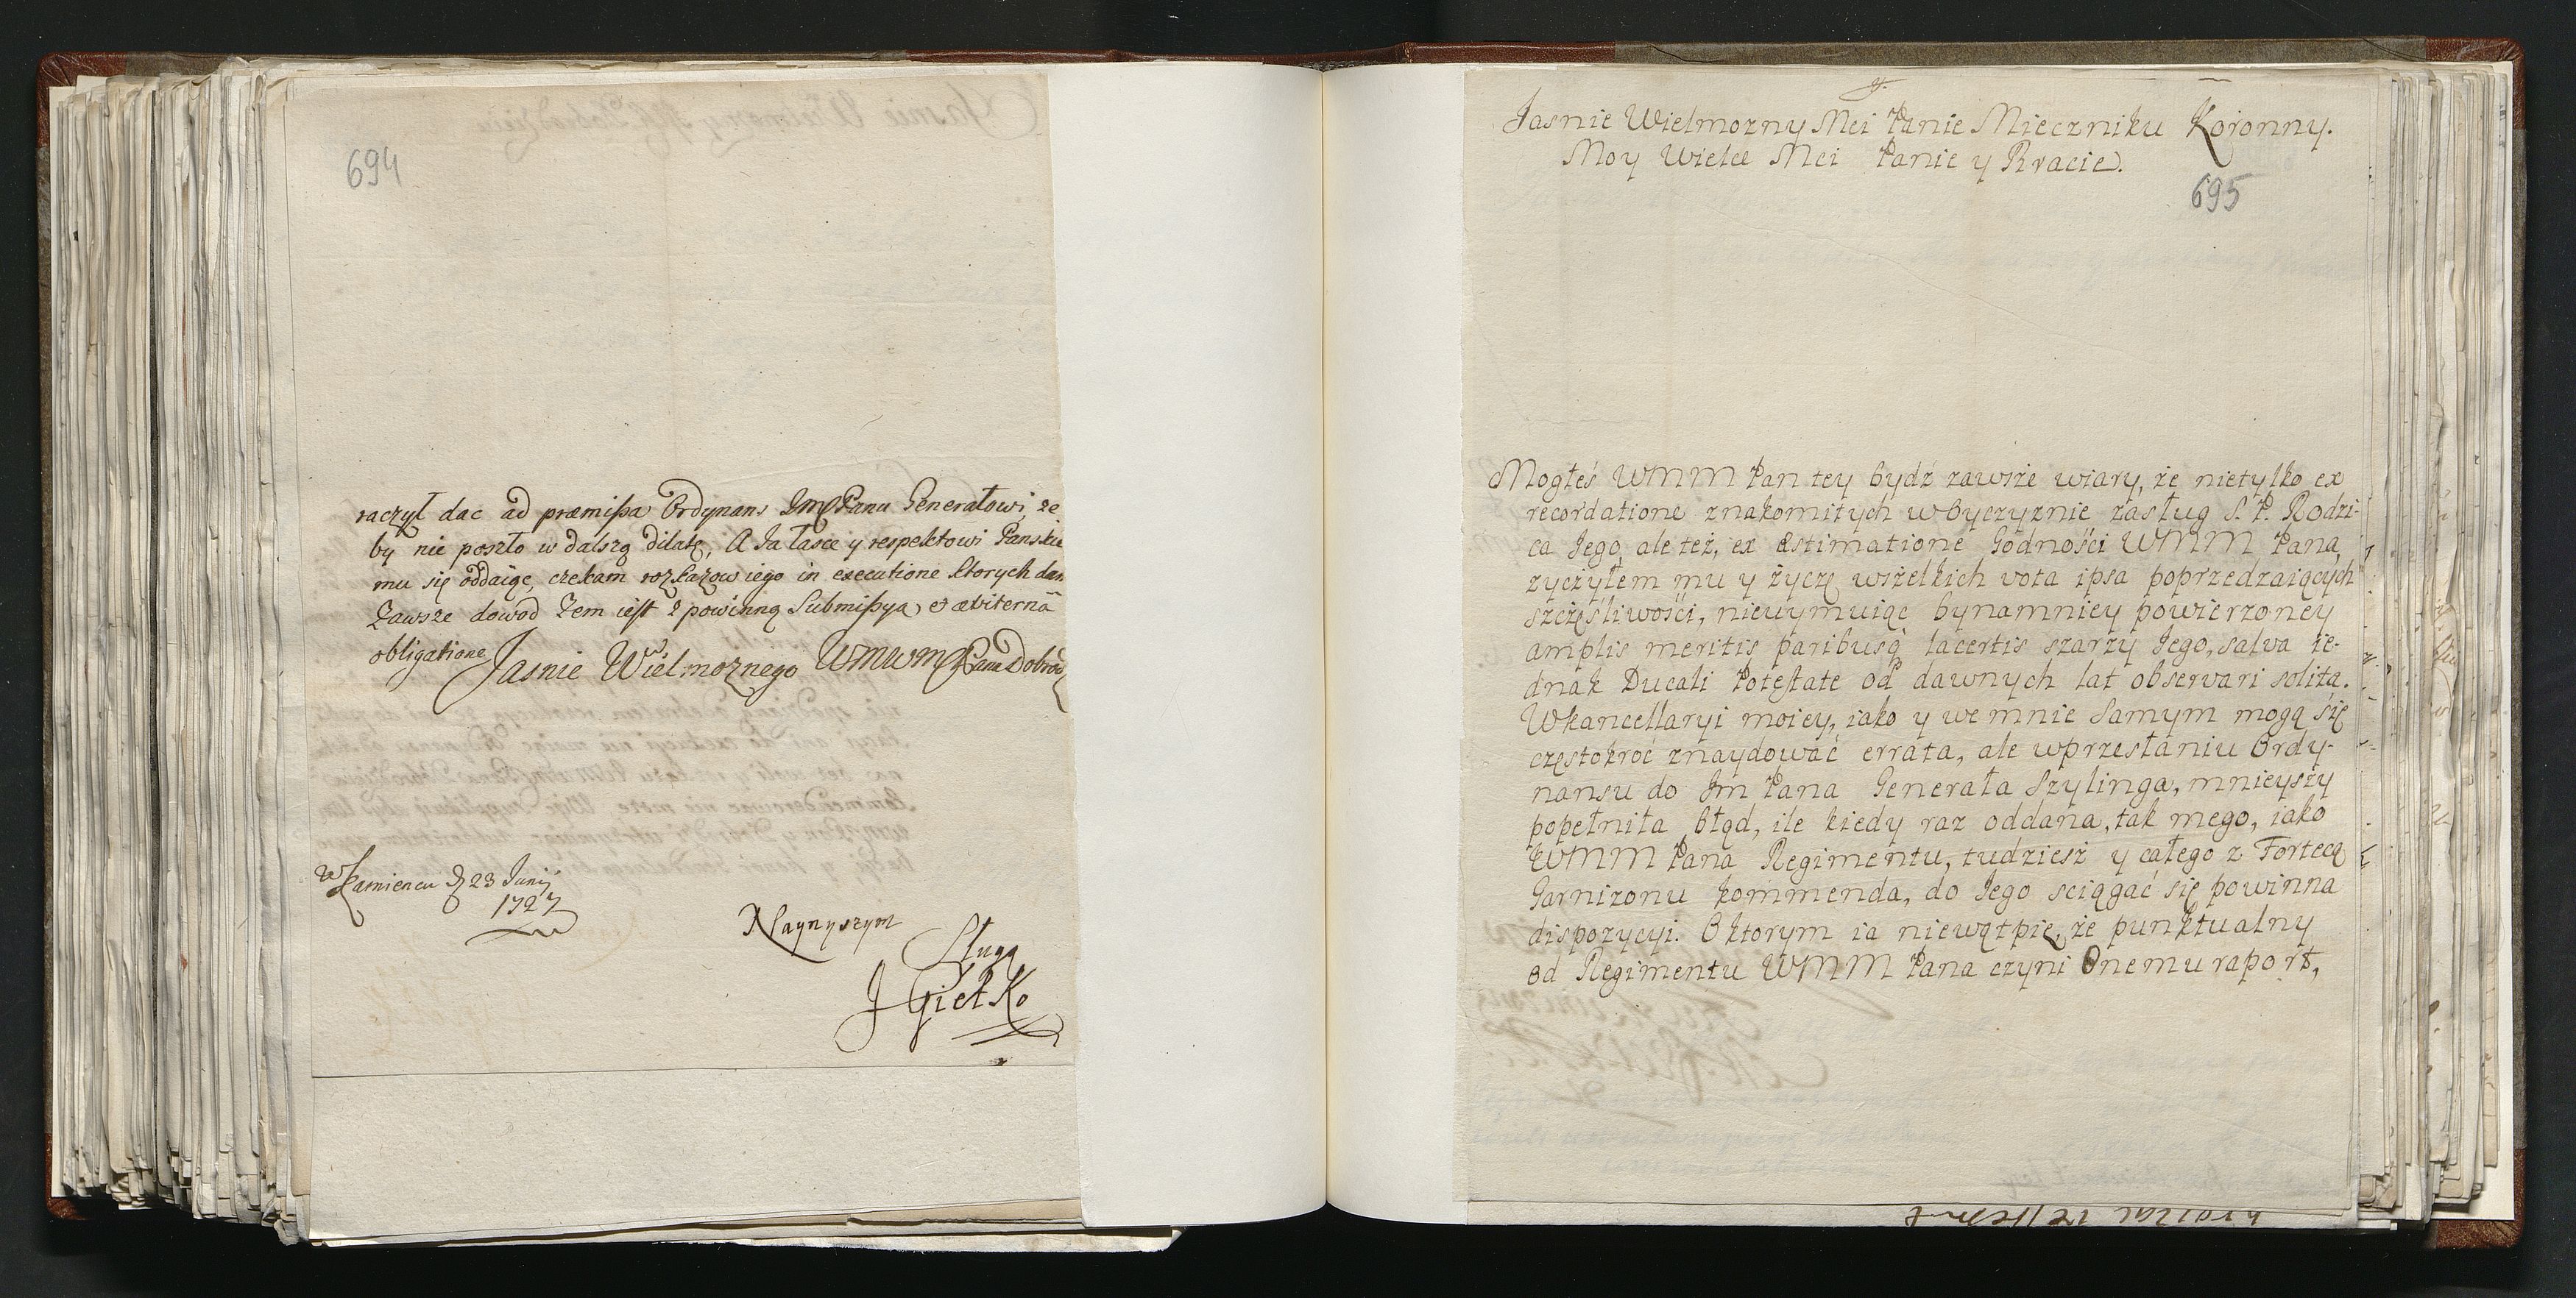 694
raczył dac ad præmissa Ordynans JmPanu Generałowi, ze
by nie poszło w dalszą dilatę, A Ja łasce y respektowi Panskie
mu się oddaiąc, czekam rozkazow iego in executione ktorych dam
Zawsze dowod Zem iest z powinną Submissyą, et æviternâ
obligatione
Jasnie Wielmoznego WMWMPana Dobrodz
w Kamiencu d 23 Junij
1727
Naynyszym
Sługą
J Giełko
Jasnie Wielmozny Mci Panie Mieczniku Koronny.
Moy Wielce Mci Panie y Bracie.
695
Mogłeś WMM Pan tey bydź zawsze wiary, że nietylko ex
recordatione znakomitych w Oyczyznie zasług S. P. Rodzi-
ca Jego, ale też, ex Æstimatione Godności WMM Pana,
zyczyłem mu y życzę wszelkich vota ipsa poprzedzaiących
szczęśliwości, nieuymuiąc bynamniey powierzoney
amplis meritis paribusq lacertis szarzy Jego, salva ie-
dnak Ducali Potestate od dawnych lat observari solita.
W kancellaryi moiey, iako y we mnie Samym mogą się
częstokroć znaydować errata, ale w przesłaniu Ordy-
nansu do Jm Pana Generała Szylinga, mnieyszy
popełniła błąd, ile kiedy raz oddana, tak mego, iako
WMM Pana Regimentu, tudziesz y całego z Fortecą
Garnizonu kommenda, do Jego sciągać się powinna
dispozycyi. O ktorym ia niewątpię, że punktualny
od Regimentu WMM Pana czyni Onemu raport,